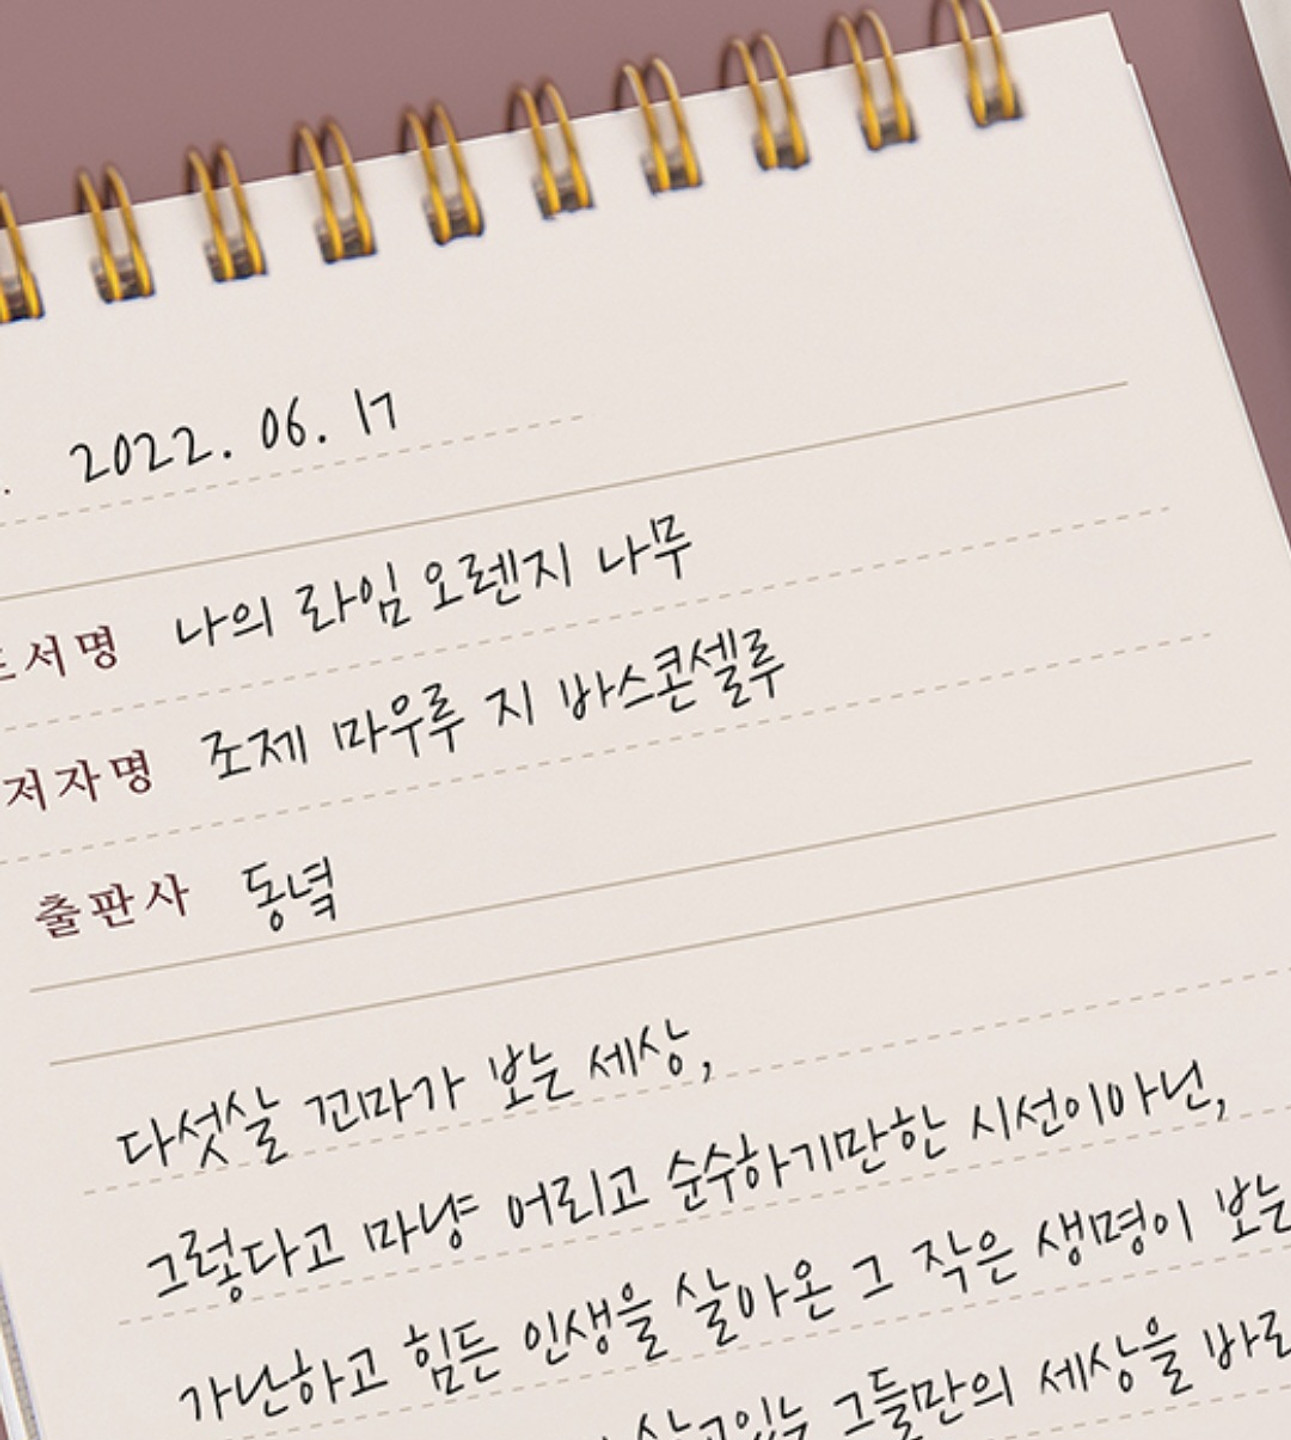 . 2022. 06. 17
서명 나의 라임 오렌지 나무
저자명 조제 마우루 지 바스콘셀루
출판사 동녘
다섯살 꼬마가 보는 세상,
그렇다고 마냥 어리고 순수하기만한 시선이아닌,
가난하고 힘든 인생을 살아온 그 작은 생명이 보는
살고있는 그들만의 세상을